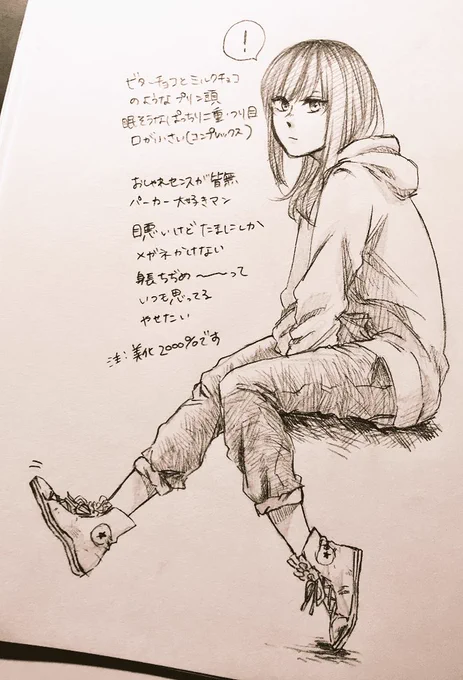 !
ビターチョコとミルクチョコ
のようなプリン頭
眠そうなぱっちり二重・つり目
口が小さい(コンプレックス)
おしゃれセンスが皆無
パーカー大好きマン
目悪いけどたまにしか
メガネかけない
身長ちぢめ〜〜って
いつも思ってる
やせたい
注:美化2000%です